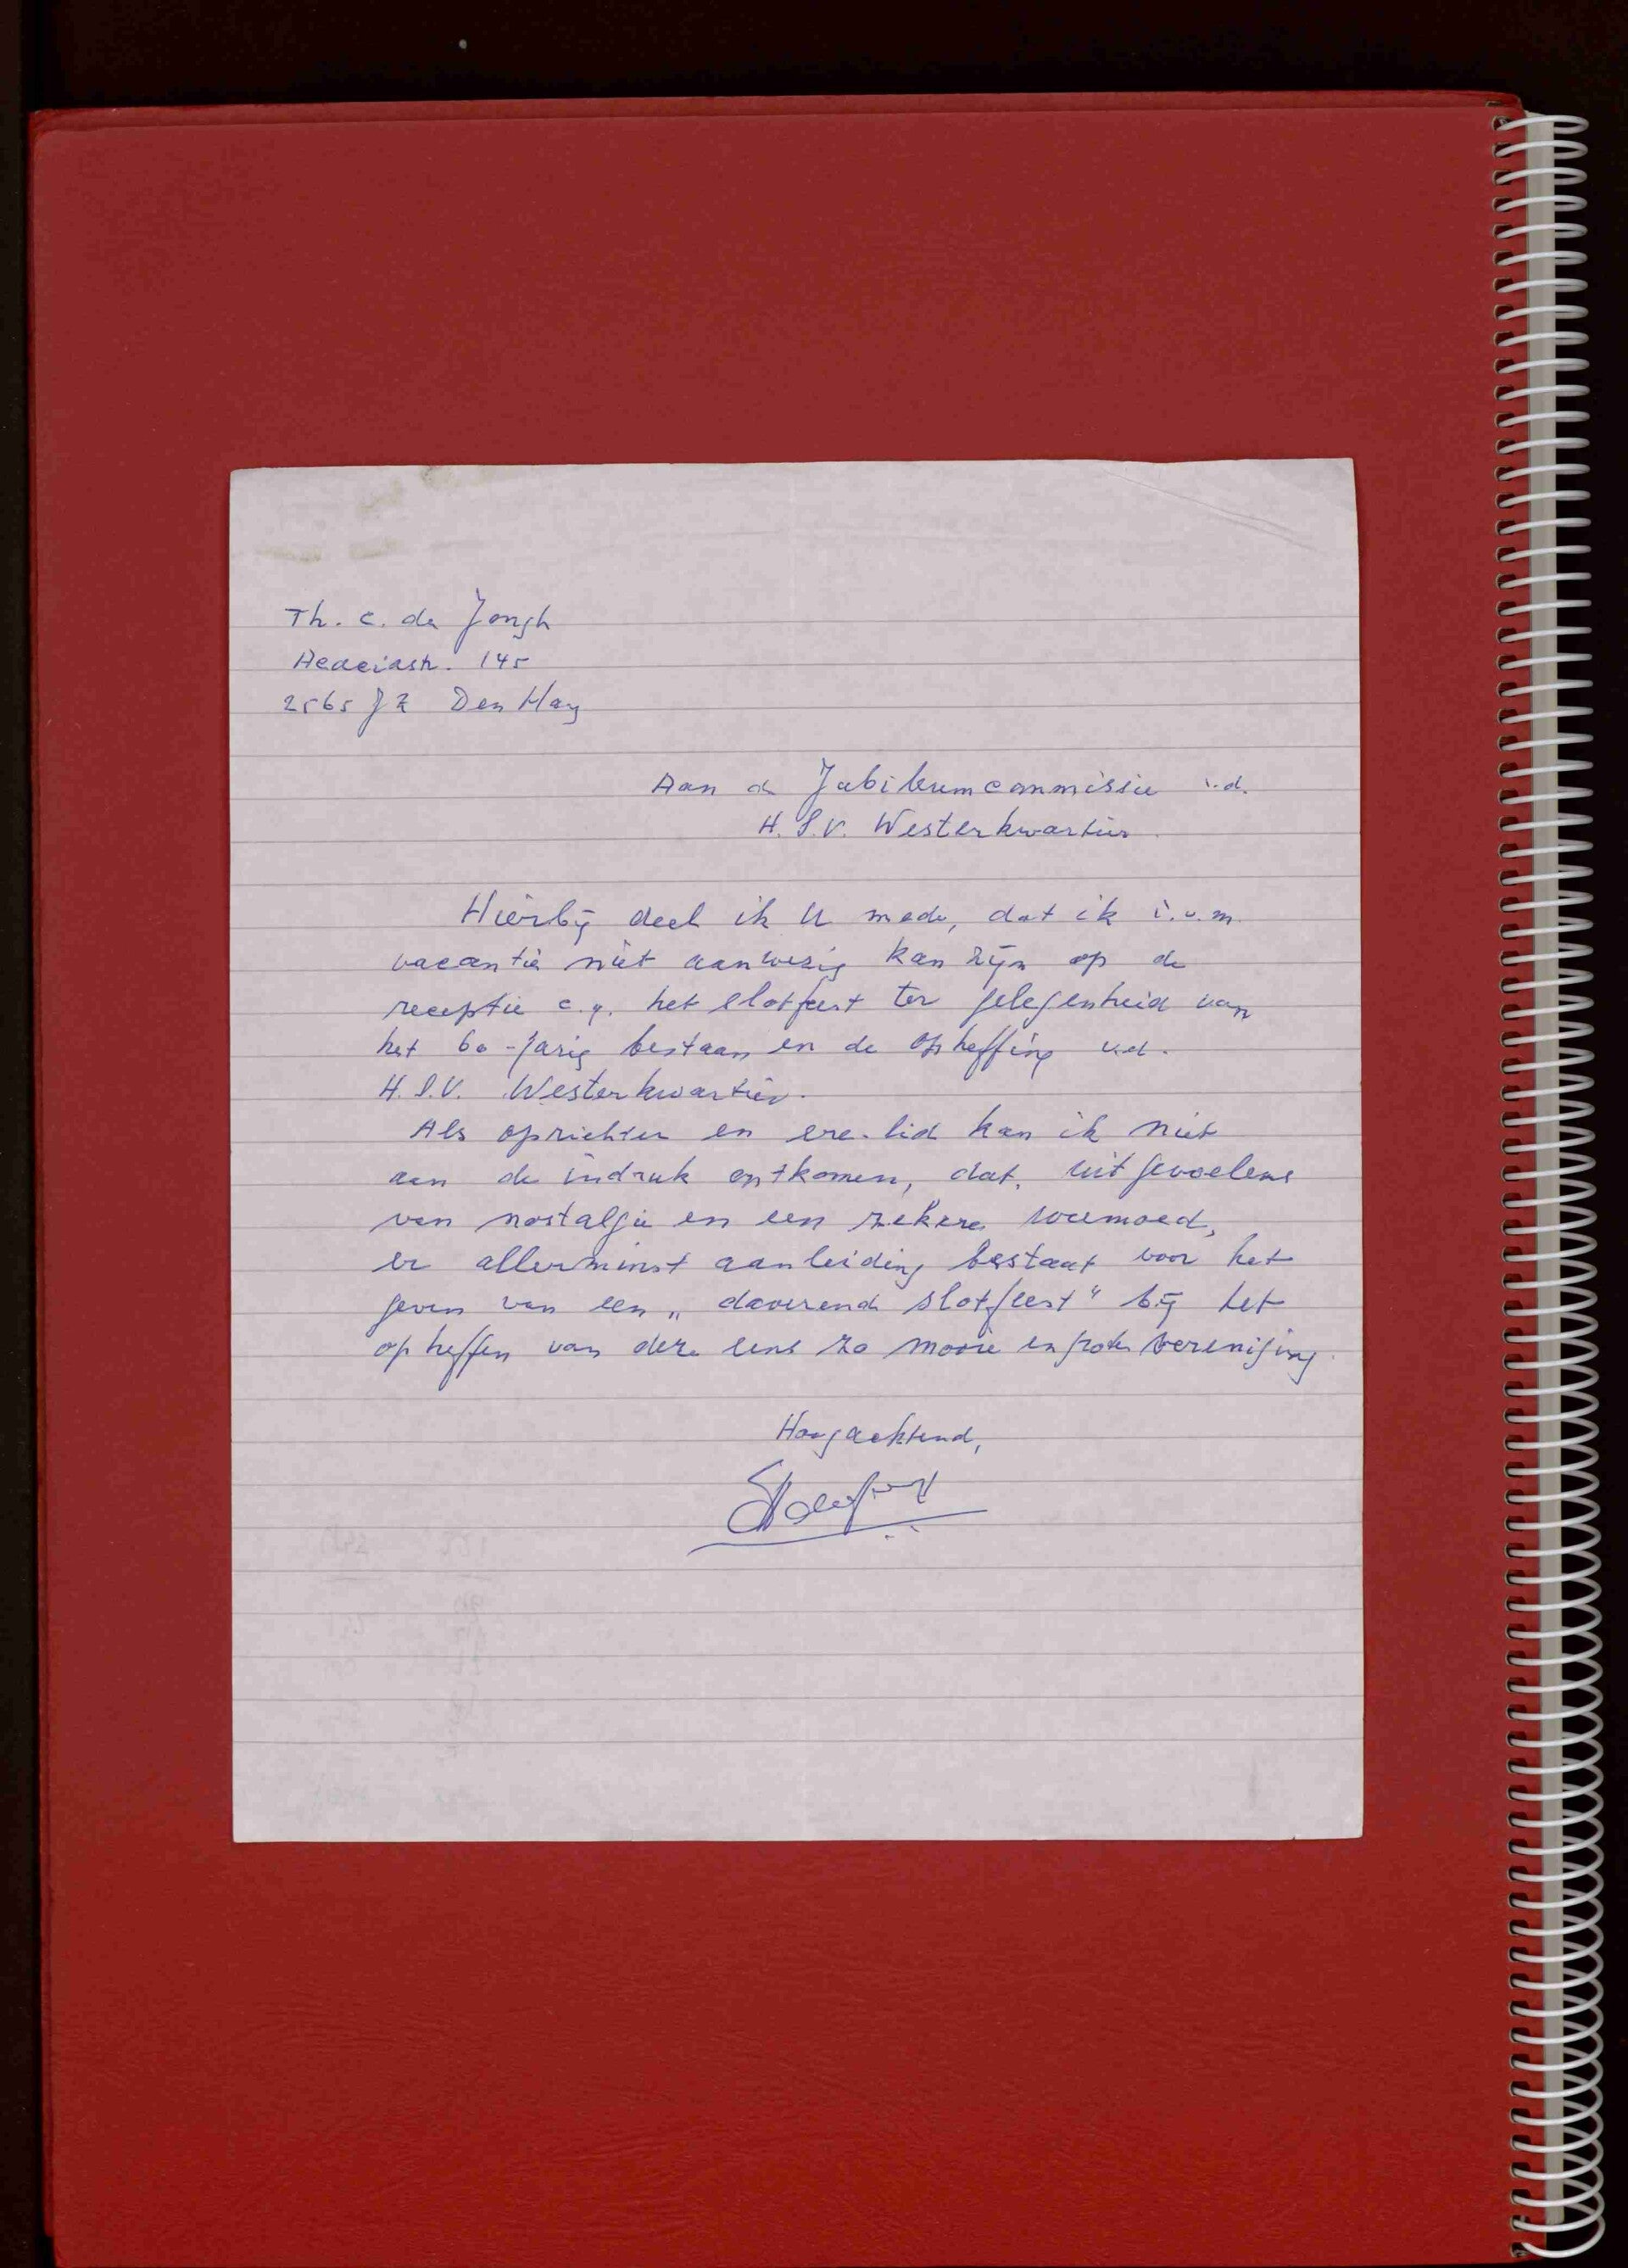 Th. C. de Jongh
Acaciastr. 145
2565 JZ Den Haag
Aan de Jubileumcommissie v.d.
H.S.V. Westerkwartier.
Hierbij deel ik U mede, dat ik i.v.m.
vacantie niet aanwezig kan zijn op de
receptie c.q. het slotfeest ter gelegenheid van
het 60-jarig bestaan en de opheffing v.d.
H.S.V. Westerkwartier.
Als oprichter en ere-lid kan ik niet
aan de indruk ontkomen, dat, uit gevoelens
van nostalgie en een zekere weemoed,
er allerminst aanleiding bestaat voor het
geven van een „daverend slotfeest" bij het
opheffen van deze eens zo mooie en grote vereniging.
Hoogachtend,